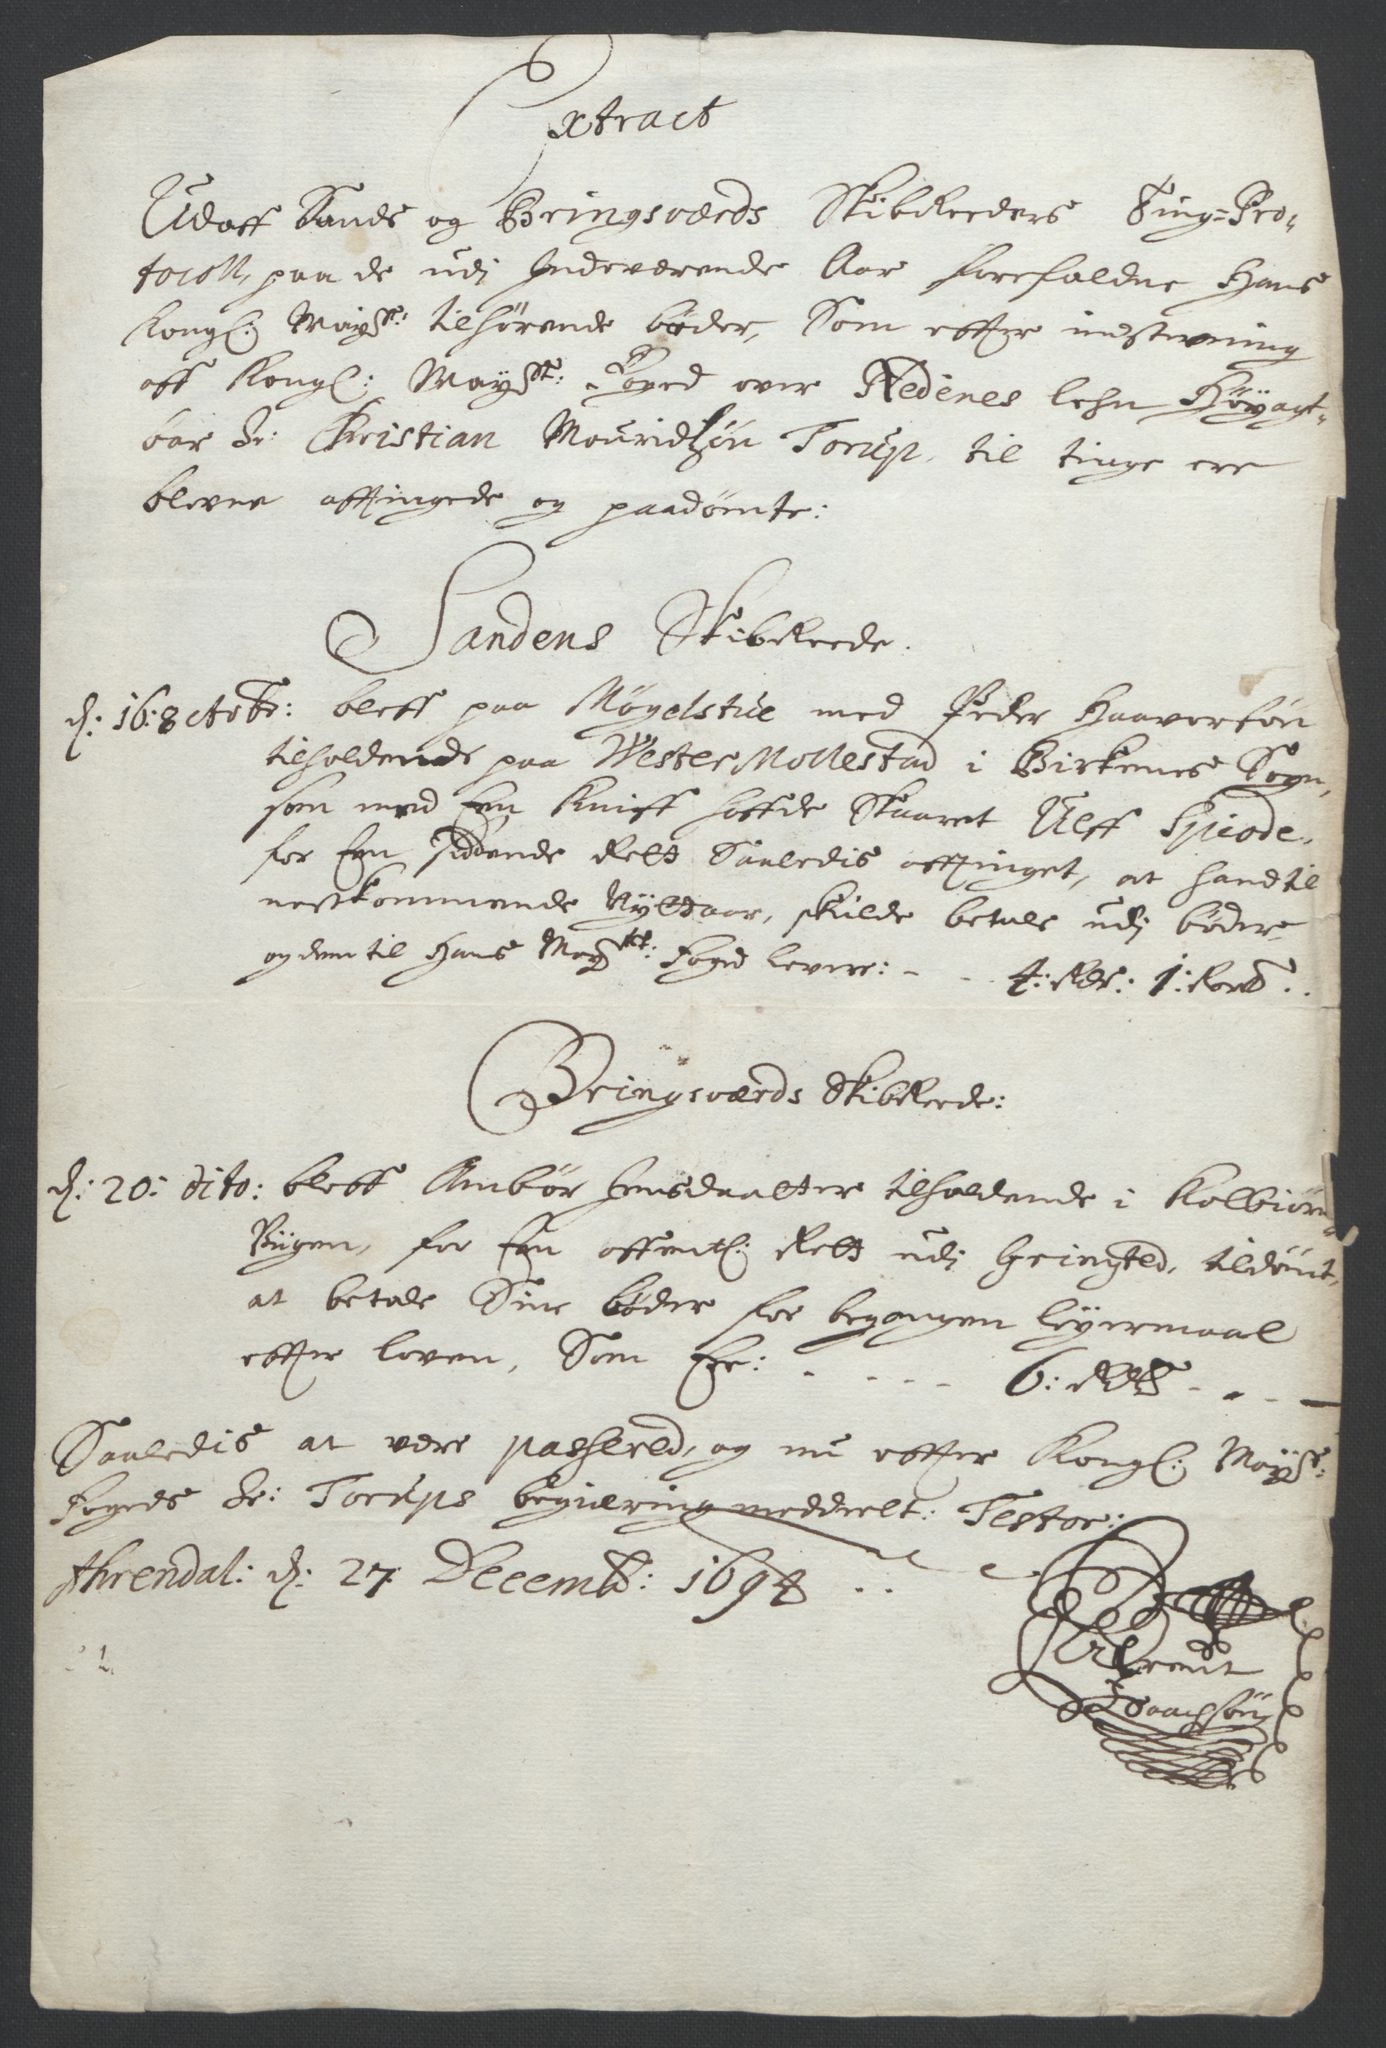 Extract
Udaff Sands og Bringsværds Skibreeders Ting=Pro-
tocoll, paa de udj Indeværende Aar forefaldne Hans
Kongl: Mayst: tilhørende bøder, Som effter indstevning
aff Kongl: Mayst: Foged over Nedenes lehn Høyagt-
bar Sr: Christian Mouridsøn Torup, til tinge ere
blevne afftingede og paadømte:
Sandens Skibreede.
d: 16: 8ctobr: bleff paa Møgelstue med Peder Haaversøn
tilholdende paa Wester Mollestad i Birkenes Sogn,
som med Een Kniff haffde Skaaret Ulff Spiode,
for Een Siddende Rett Saaledis afftinget, at hand til
nestkommende Nyttaar, skulde betale udj bøder
og dem til Hans Mayst: Foged levere: - - 4: Rdr: 1: Kort ..
Bringsværds Skibreede:
d: 20: dito: bleff Anbør Jensdaatter tilholdende i Kolbiørns
Viigen, for Een offentl: Rett udj Gringsted, tildømt,
at betale Sine bøder for begangen leyermaal
effter loven, Som Ere: - - - - 6: Rdr - - - -
Saaledis at være passered, og nu effter Kongl: Mayst:
Fogeds Sr: Torups begiæring meddeelt: Testor:
Ahrendal: d: 27. Decemb: 1694 ..
Berent
Isaachsøn